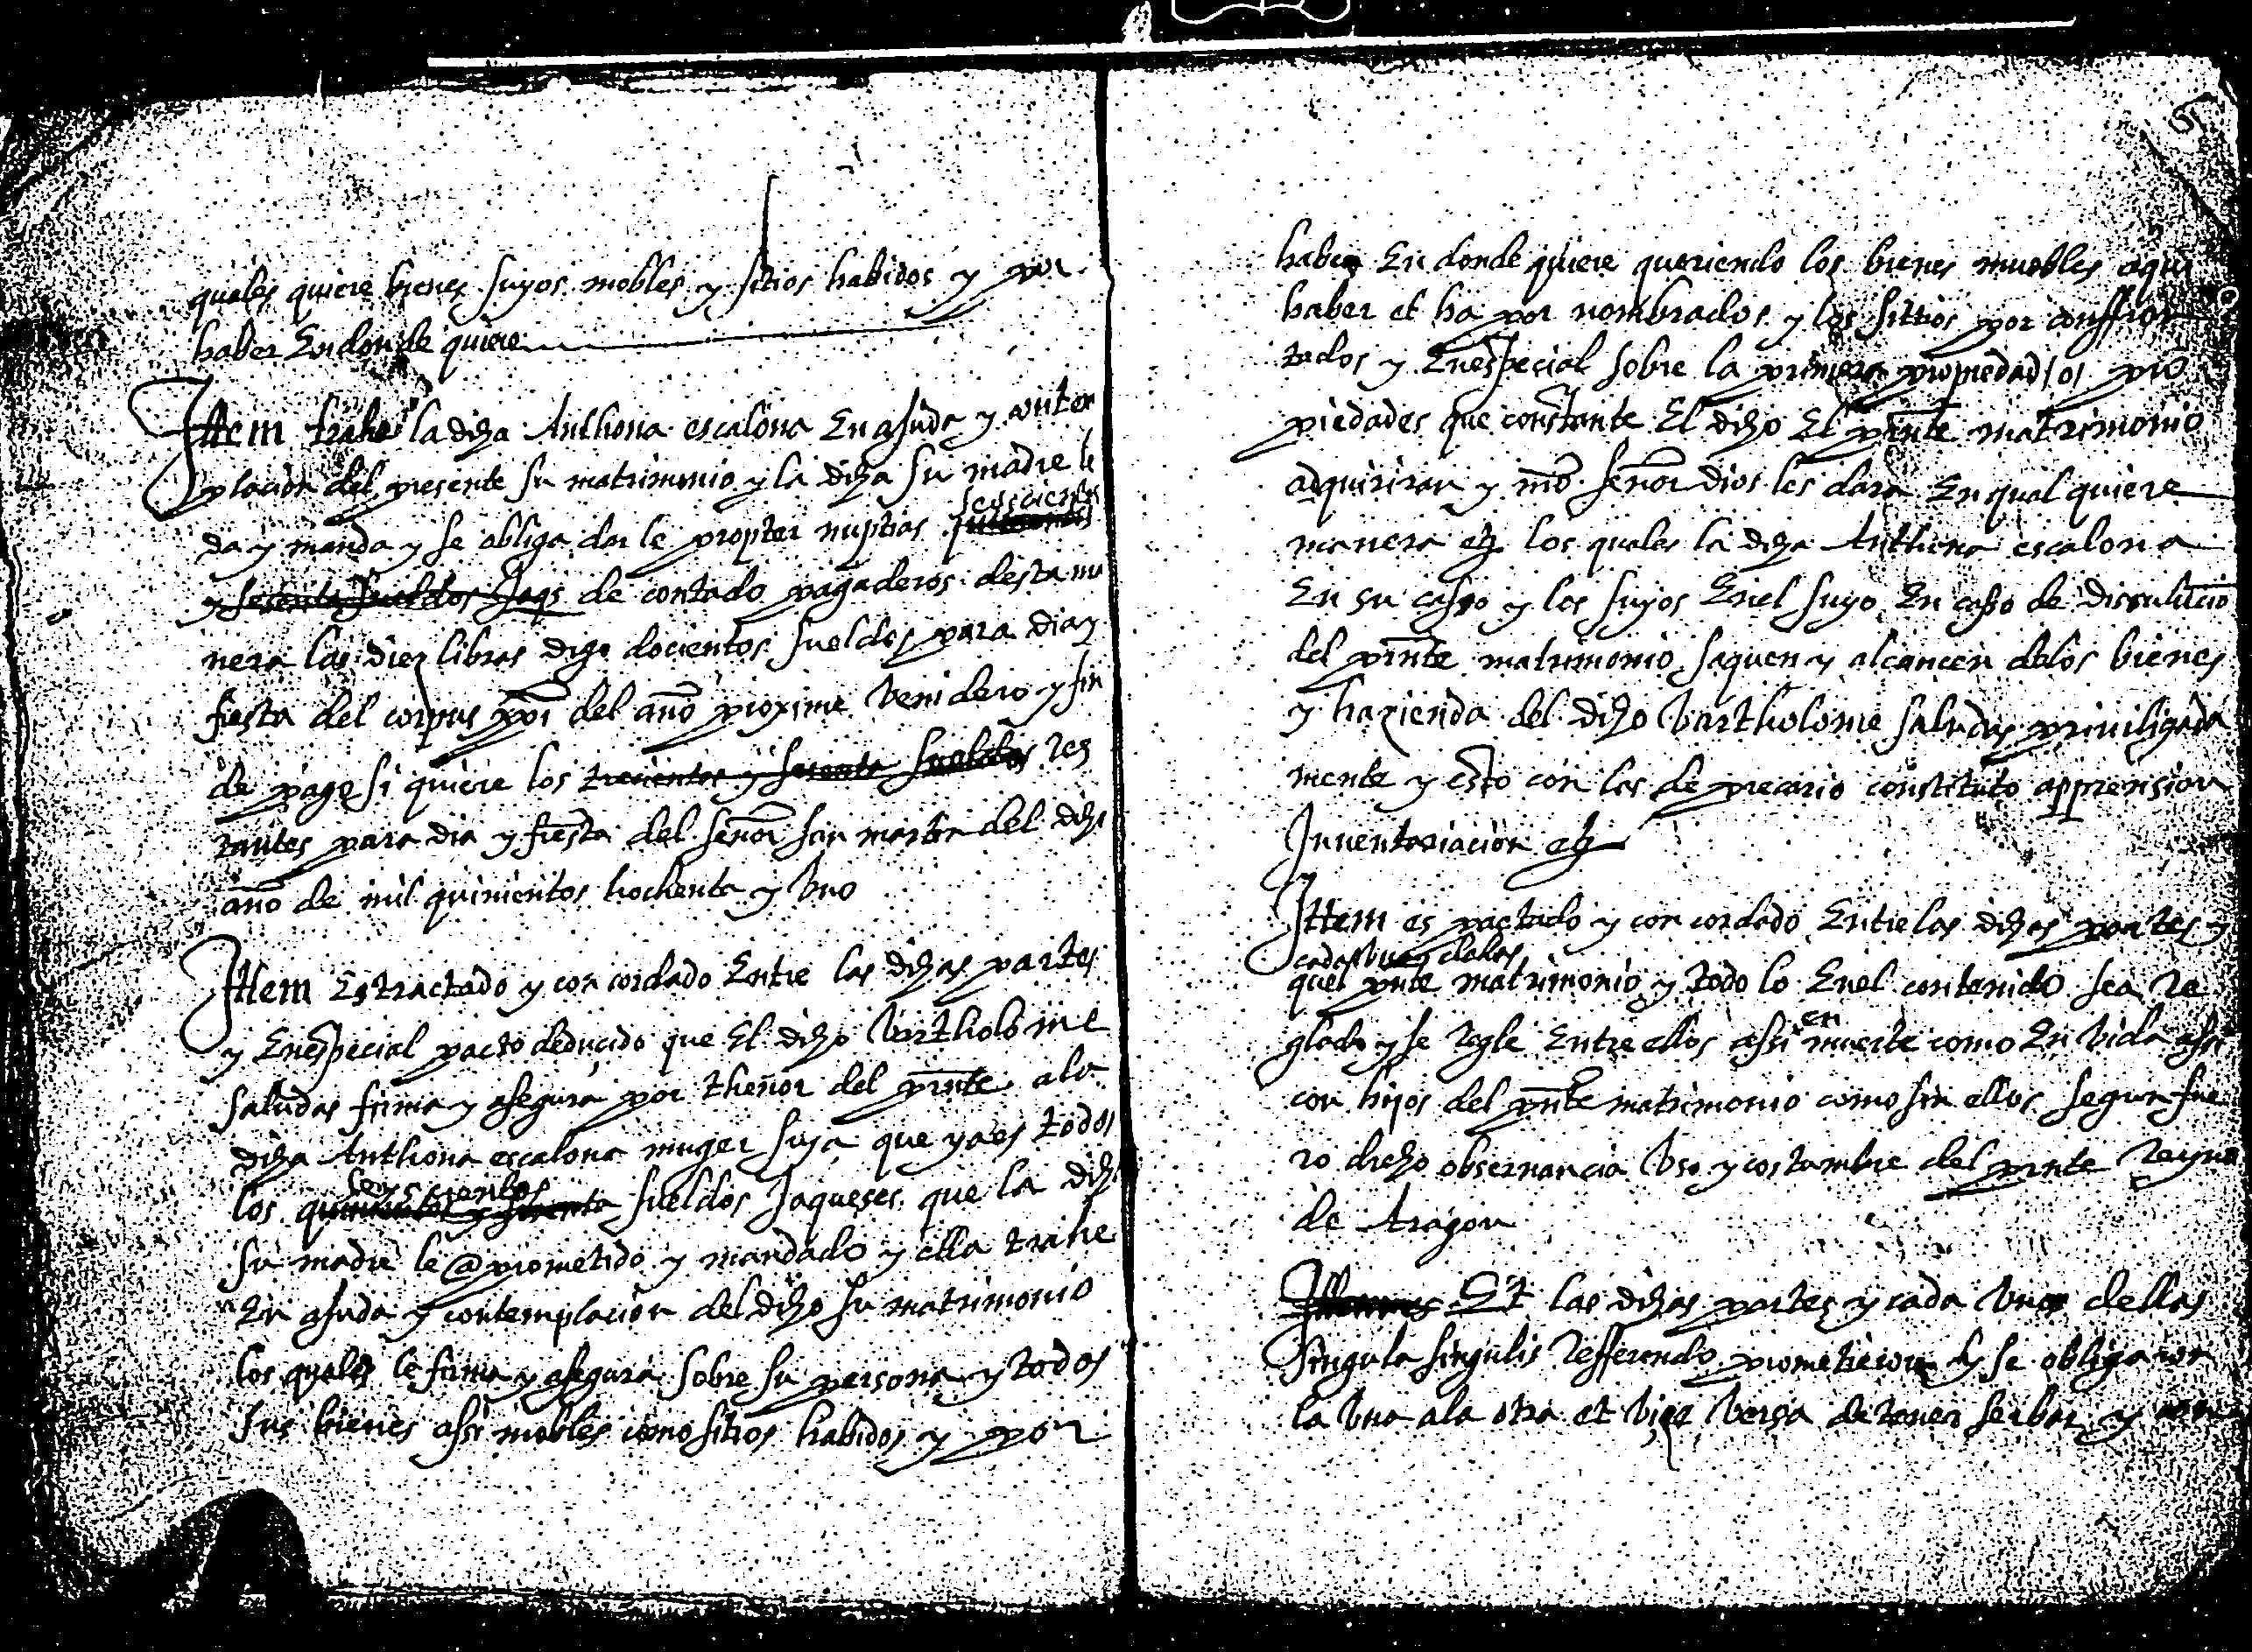 quales quiere bienes suyos mobles y sitios habidos y por
haber En donde quiere
Ittem trahe la dicha Anthona escalona En ajuda y contem
placion del presente su matrimonio y la dicha su madre le
da y manda y se obliga dar le propter nuptias seyscientos
y sesenta sueldos Jaqs de contado pagaderos desta ma
nera las diez libras digo docientos sueldos para dia y
fiesta del corpus pri del año proxime venidero y fin
de pago si quiere los trecientos y sesenta sueldos res
tantes para dia y fiesta del señor san martin del dicho
año de mil quinientos hochenta y Uno
Ittem Es tractado y con cordado Entre las dichas partes
y En especial pacto deducido que El dicho Bartholome
saludas firma y assegura por thenor del pñte a la
dicha Anthona escalona muger suya que ya es todos
seys cientos
los quinientos y sesenta sueldos Jaqueses que la dicha
su madre le @ prometido y mandado y ella trahe
En ajuda y contemplacion del dicho su matrimonio
los quales le firma y assegura sobre su persona y todos
sus bienes assi mobles como sitios habidos y por
haber En donde quiere queriendo los bienes muebles aqui
haber et ha por nombrados y los sittios por conffron
tados y En especial sobre la primera propiedad / o / pro
piedades que constante El dicho El pñte matrimonio
adquiriran y nro señor dios les dara En qual quiere
manera etz los quales la dicha Anthona escalona
En su casso y los suyos En el suyo En casso de dissulucio
del pñte matrimonio saquen y alcancen de los bienes
y hazienda del dicho Bartholome saludas priviligiada
mente y esto con los de precario constituto apprension
Inventariacion etz
Ittem es pactado y con cordado Entre las dichas partes y
cada Una dellas
quel pnte matrimonio y todo lo En el contenido sea re
glado y se regle Entre ellos assi en muerte como En vida assi
con hijos del pñte matrimonio como sin ellos segun fue
ro drecho observancia Uso y costumbre del pnte Reyno
de Aragon
Et las dichas partes y cada Una dellas
singula singulis refferendo prometieron y se obligaron
la Una a la otra et vice versa de tener serbar y